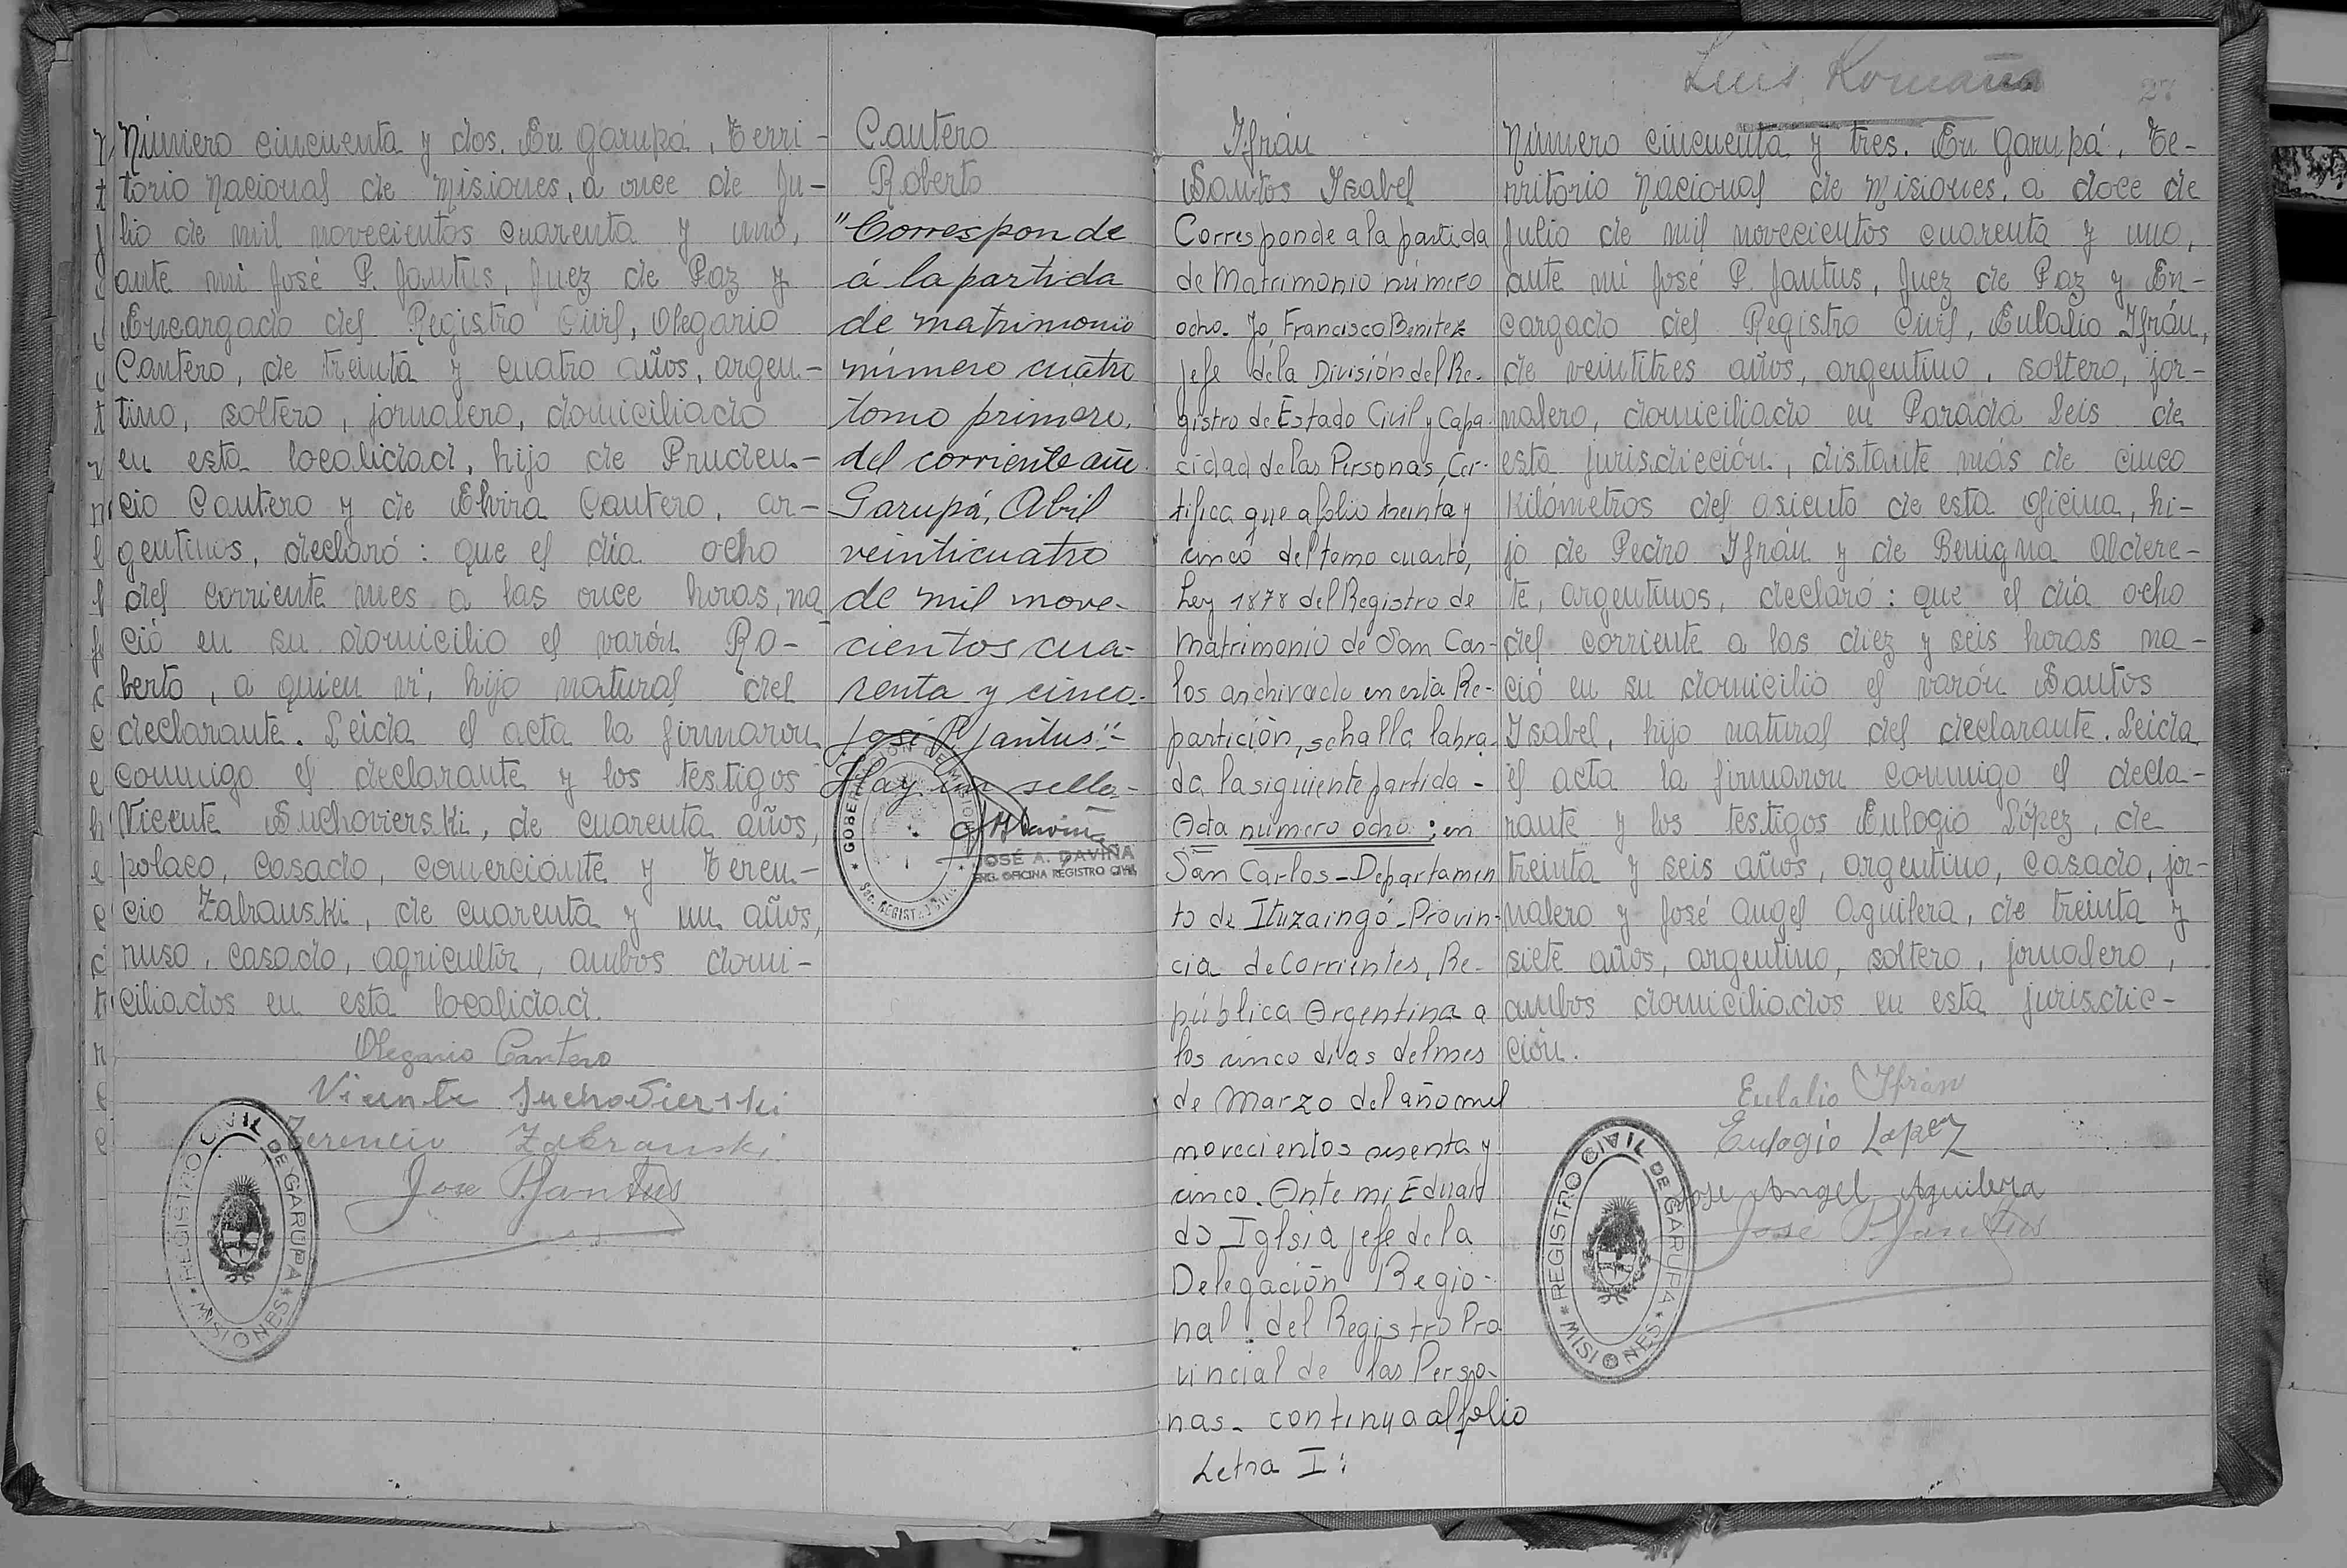 Número cincuenta y dos. En Garupá, Terri-
torio Nacional de Misiones, a once de Ju-
lio de mil novecientos cuarenta y uno,
ante mi José P. Jantus, Juez de Paz y
Encargado del Registro Civil, Olegario
Cantero, de treinta y cuatro años, argen-
tino, soltero, jornalero, domiciliado
en esta localidad, hijo de Pruden-
cio Cantero y de Elvira Cantero, ar-
gentinos, declaró: que el día ocho
del corriente mes a las once horas, na
ció en su domicilio el varón Ro-
berto, a quien vi, hijo natural del
declarante. Leida el acta la firmaron
conmigo el declarante y los testigos
Vicente Suchovierski, de cuarenta años,
polaco, casado, comerciante y Teren-
cio Zabranski, de cuarenta y un años,
ruso, casado, agricultor, ambos domi-
ciliados en esta localidad.
Olegario Cantero
Vicente Suchovierski
Terencio Zabranski
Jose P Jantus
REGISTRO CIVIL DE GARUPA
* MISIONES *
Cantero
Roberto
"Corresponde
á la partida
de matrimonio
número cuatro
tomo primero,
del corriente año.
Garupá, Abil
veinticuatro
de mil nove-
cientos cua-
renta y cinco.
José P Jantus"-
Hay un sello-
JOSÉ A. DAVIÑA
ENG. OFICINA REGISTRO CIVIL
Ifrán
Santos Isabel
Corresponde a la partida
de Matrimonio número
ocho. Yo, Francisco Benitez
jefe de la División del Re-
gistro de Estado Civil y Capa-
cidad de las Personas, Cer-
tifica que a folio treinta y
cinco del tomo cuarto,
Ley 1878 del Registro de
Matrimonio de San Car-
los archivado en esta Re-
partición, se halla labra-
da la siguiente partida -
Acta número ocho: en
San Carlos - Departamen
to de Ituzaingó - Provin-
cia de Corrientes, Re-
pública Argentina a
los cinco dias del mes
de Marzo del año mil
novecientos sesenta y
cinco. Ante mi Eduard
do Iglsia jefe de la
Delegación Regio-
nal del Registro Pro
vincial de las Perso-
nas - continua al folio
Letra I:
Luis Romaña
27
Número cincuenta y tres. En Garupá, Te-
rritorio Nacional de Misiones, a doce de
Julio de mil novecientos cuarenta y uno,
ante mi José P. Jantus, Juez de Paz y En-
cargado del Registro Civil, Eulalio Ifrán,
de veintitres años, argentino, soltero, jor-
nalero, domiciliado en Parada Leis de
esta jurisdicción, distante más de cinco
kilómetros del asiento de esta oficina, hi-
jo de Pedro Ifrán y de Benigna Aldere-
te, argentinos, declaró: que el día ocho
del corriente a las diez y seis horas na-
ció en su domicilio el varón Santos
Isabel, hijo natural del declarante. Leida
el acta la firmaron conmigo el decla-
rante y los testigos Eulogio López, de
treinta y seis años, argentino, casado, jor-
nalero y José Angel Aguilera, de treinta y
siete años, argentino, soltero, jornalero,
ambos domiciliados en esta jurisdic-
ción.
Eulalio Ifran
Eulogio Lopez
Jose Angel Aguilera
José P. Jantus
REGISTRO CIVIL DE GARUPA
* MISIONES *